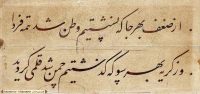 از ضعف بهر جا که نشستیم وطن شد
وز گریه بهر سو که گذشتیم چمن شد قلمی گردید